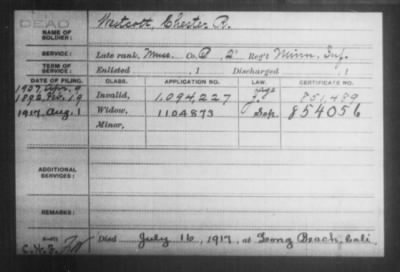 DEAD
NAME OF SOLDIER: Westcott, Chester R.
SERVICE: Late rank, Musc. Co. D, 2" Reg't Minn. Inf.
TERM OF SERVICE: Enlisted , 1 Discharged , 1
DATE OF FILING. CLASS. APPLICATION NO. LAW. CERTIFICATE NO.
1907, Apr. 9 age
1892, 19 Invalid, 1,094,227 851,489
1917, Aug. 1 Widow, 1104873 854056
Minor,
ADDITIONAL SERVICES:
REMARKS:
Died July 16, 1917, at Long Beach, Cali